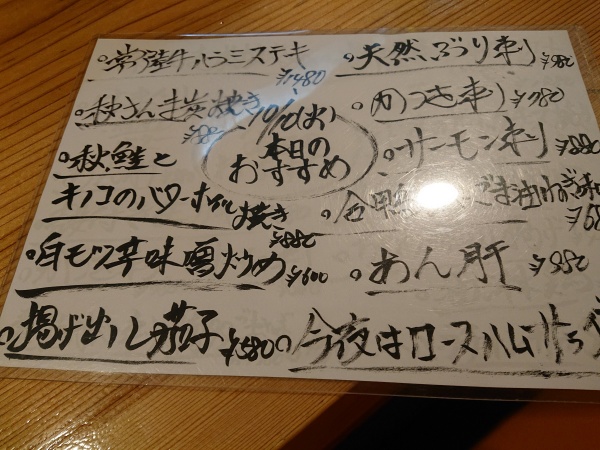 常陸牛ハラミステーキ
¥1480
秋さんま炭焼き
10/10(火)
本日の
おすすめ
秋鮭と
キノコのバターホイル焼き
¥880
白モツ辛味噌炒め ¥600
揚げ出し茄子 ¥580
天然ぶり刺 ¥980
かつを刺 ¥780
サーモン刺 ¥880
合鴨 ごま油ねぎ
あん肝 ¥880
今夜はロースハム